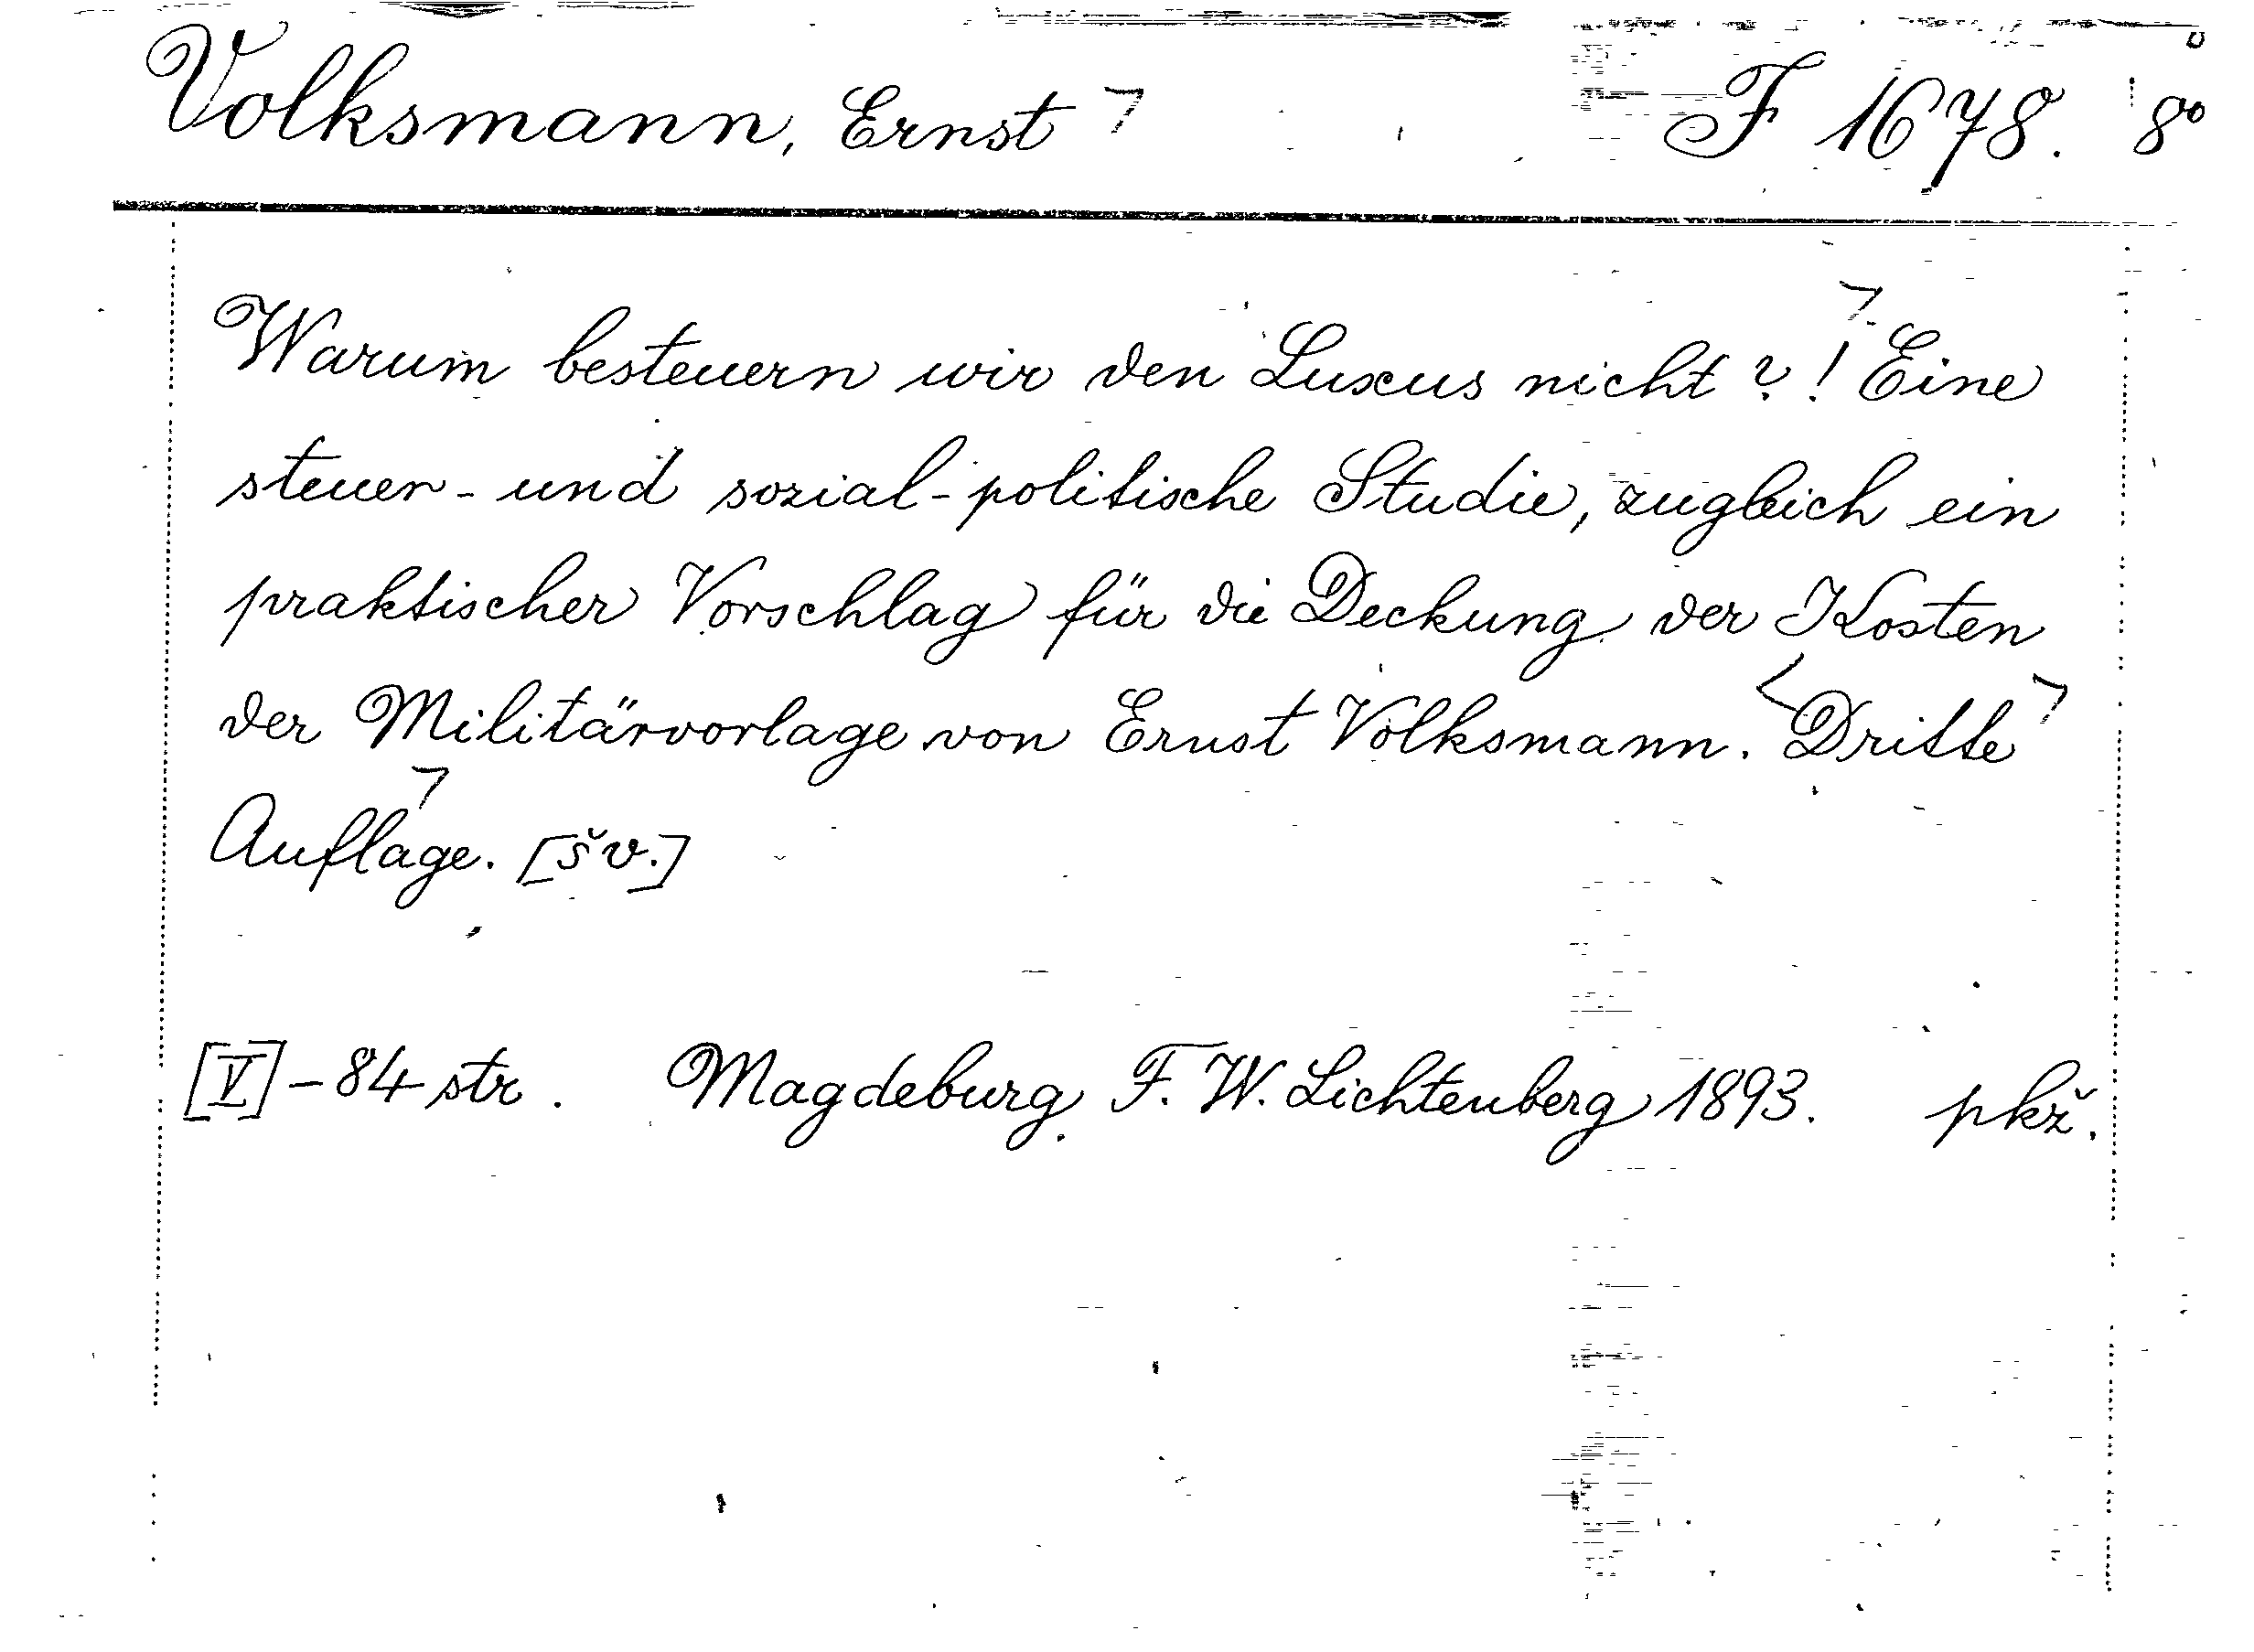 Volksmann, Ernst F 1678. 8º
Warum besteuern wir den Luxus nicht?! Eine
steuer- und sozial-politische Studie, zugleich ein
praktischer Vorschlag für die Deckung der Kosten
der Militärvorlage von Ernst Volksmann. Dritte
Auflage. [šv.]
[V] - 84 str. Magdeburg F. W. Lichtenberg 1893. pkž.